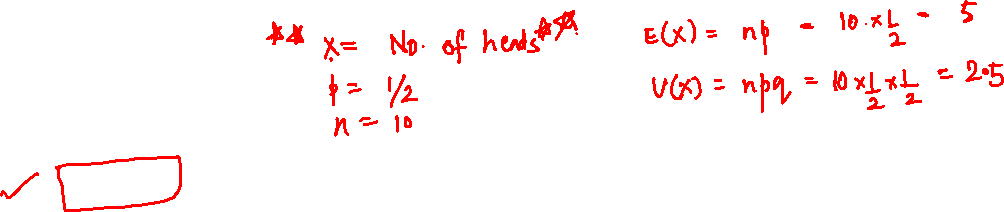 ** X = No. of heads **
p = 1/2
n = 10
E(X) = np = 10 × 1/2 = 5
V(X) = npq = 10 × 1/2 × 1/2 = 2.5